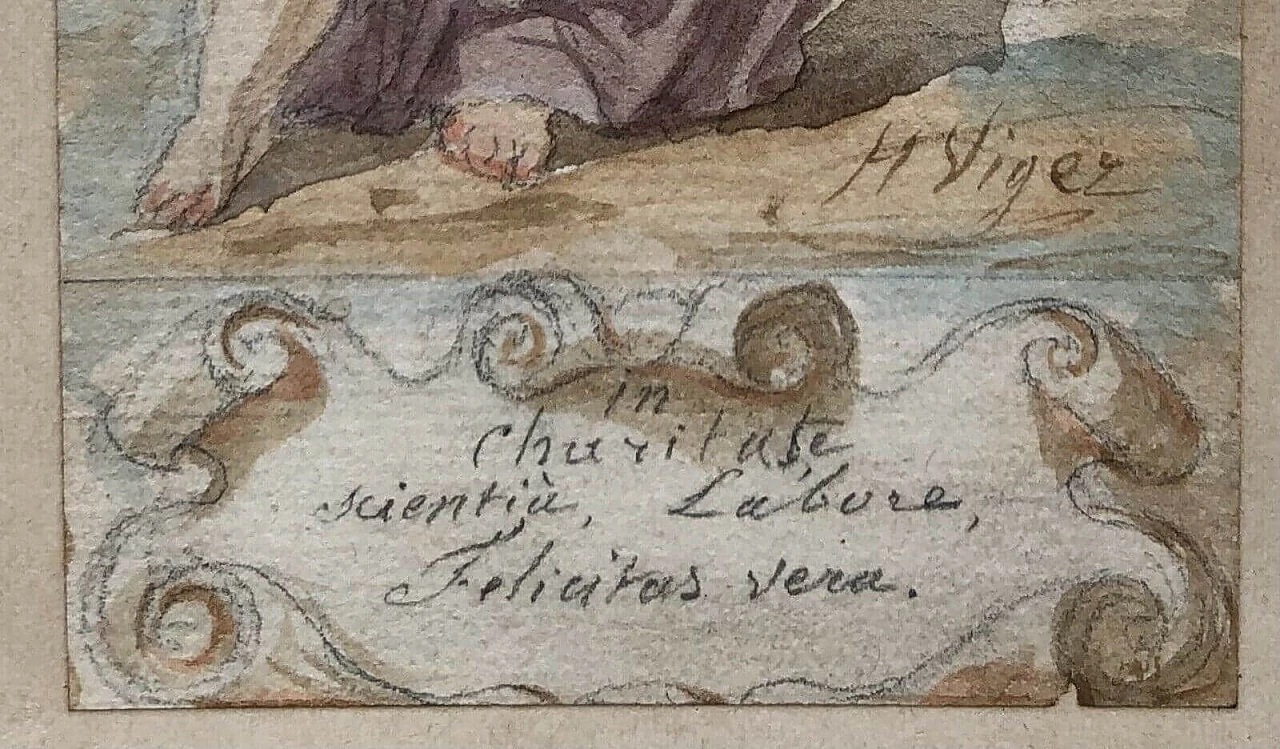 H Viger
in
charitate
scientià, Labore,
Felicitas vera.